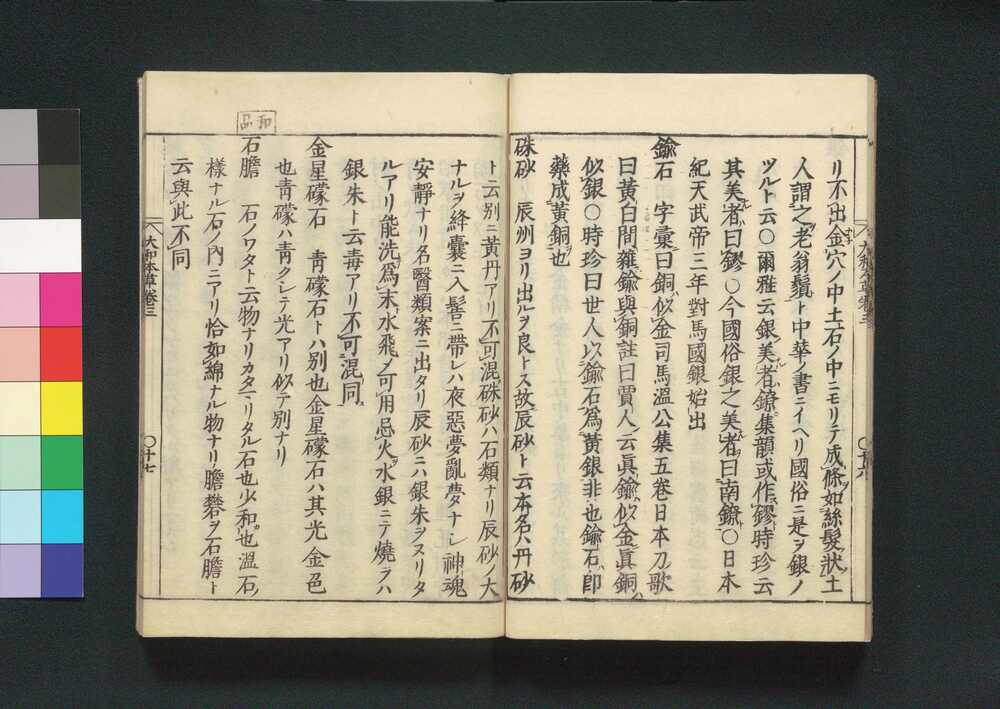 リ不出金穴ノ中土石ノ中ニモリテ成條如絲髮狀土
人謂之老翁鬚ト中華ノ書ニイヘリ國俗ニ是ヲ銀ノ
ツルト云〇爾雅云銀美者鐐集韻或作鏐時珍云
其美者曰鏐〇今國俗銀之美者曰南鐐〇日本
紀天武帝三年對馬國銀始出
鍮石 字彙曰銅似金司馬溫公集五卷日本刀歌
曰黃白間雜鍮與銅註曰賈人云眞鍮似金眞銅
似銀〇時珍曰世人以鍮石爲黃銀非也鍮石卽
藥成黃銅也
硃砂 辰州ヨリ出ルヲ良トス故辰砂ト云本名ハ丹砂
ト云別ニ黃丹アリ不可混硃砂ハ石類ナリ辰砂ノ大
ナルヲ絳囊ニ入髻ニ帶レハ夜惡夢亂夢ナシ神魂
安靜ナリ名醫類案ニ出タリ辰砂ニハ銀朱ヲスリタ
ルアリ能洗爲末水飛ノ可用忌火水銀ニテ燒ラハ
銀朱ト云毒アリ不可混同
金星礞石 靑礞石トハ別也金星礞石ハ其光金色
也靑礞ハ靑クレテ光アリ似テ別ナリ
和品
石膽 石ノワタト云物ナリカタマリタル石也少和也溫石
樣ナル石ノ內ニアリ恰如綿ナル物ナリ膽礬ヲ石膽ト
云與此不同
大和本草卷三
〇十七